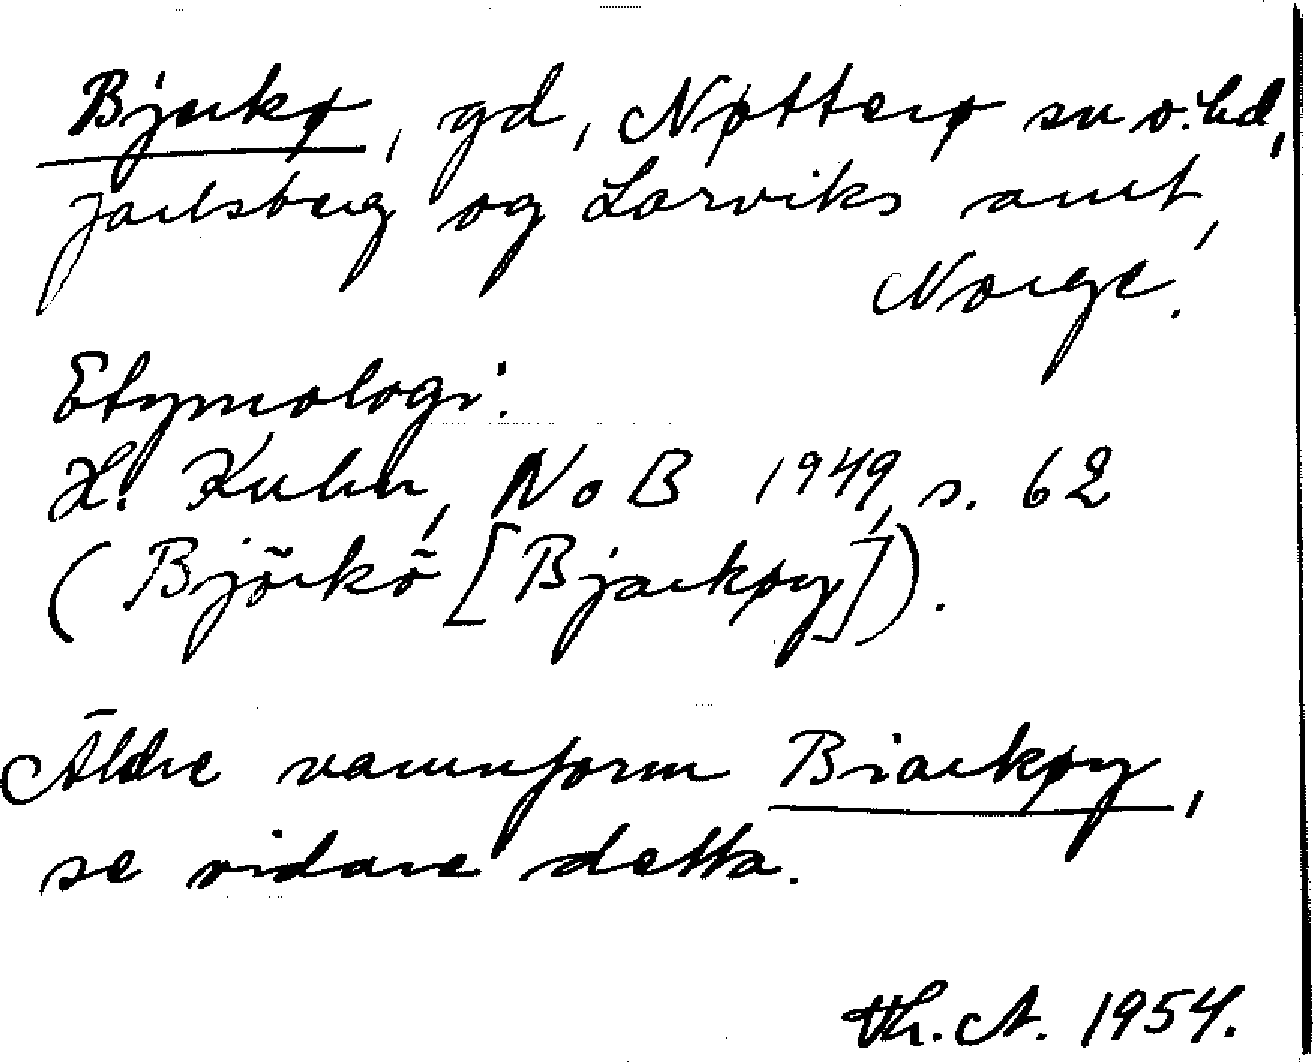 Bjerkø, gd, Nøtterø sn o. hd,
Jarlsberg og Larviks amt,
Norge.
Etymologi:
H. Kuhn, NoB 1949, s. 62
(Björkö [Bjarkøy]).
Äldre namnform Biarkøy,
se vidare detta.
Th. A. 1954.